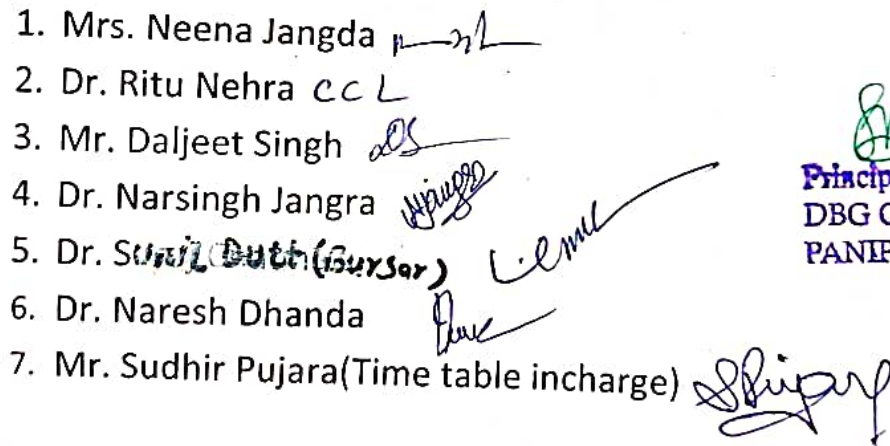 1. Mrs. Neena Jangda
2. Dr. Ritu Nehra CCL
3. Mr. Daljeet Singh
4. Dr. Narsingh Jangra
5. Dr. Sunil Dutt (Bursar)
6. Dr. Naresh Dhanda
7. Mr. Sudhir Pujara(Time table incharge)
Princip
DBG C
PANIP